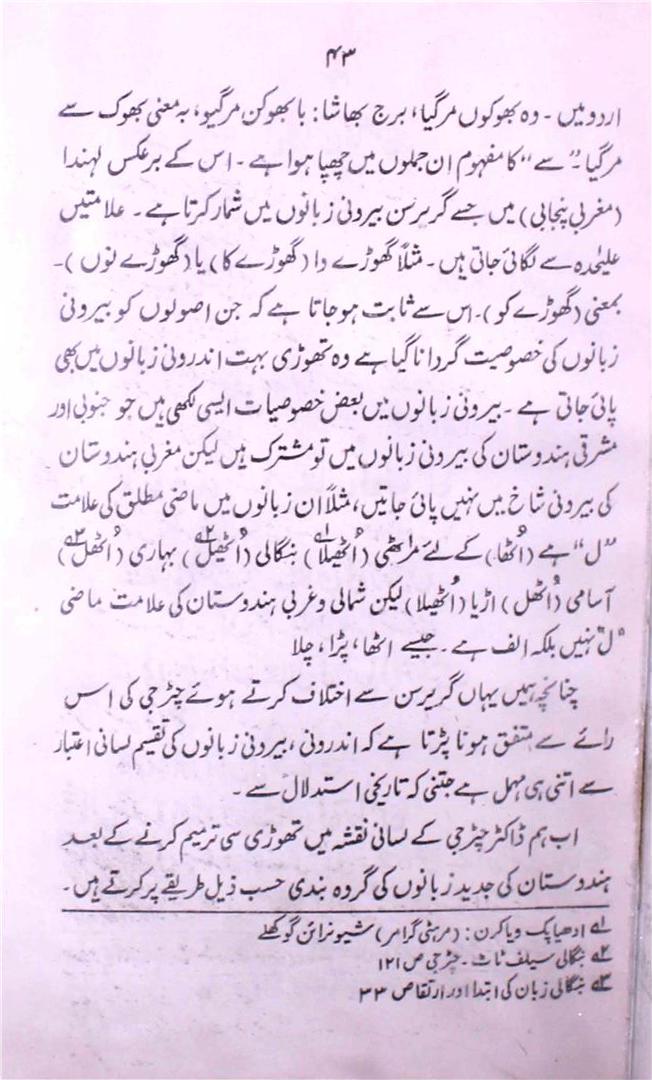 ۴۳
اردو میں - وہ بھوکوں مرگیا، برج بھاشا: با بھوکن مرگیو، بہ معنی بھوک سے
مرگیا۔ ”سے“ کا مفہوم ان جملوں میں چھپا ہوا ہے ۔ اس کے برعکس لہندا
(مغربی پنجابی) میں جسے گریرسن بیرونی زبانوں میں شمار کرتا ہے ۔ علامتیں
علیٰحدہ سے لگائی جاتی ہیں ۔ مثلاً گھوڑے دا (گھوڑے کا) یا (گھوڑے نوں)۔
بمعنی (گھوڑے کو)۔ اس سے ثابت ہوجاتا ہے کہ جن اصولوں کو بیرونی
زبانوں کی خصوصیت گردانا گیا ہے وہ تھوڑی بہت اندرونی زبانوں میں بھی
پائی جاتی ہے ۔ بیرونی زبانوں میں بعض خصوصیات ایسی لکھی ہیں جو جنوبی اور
مشرقی ہندوستان کی بیرونی زبانوں میں تو مشترک ہیں لیکن مغربی ہندوستان
کی بیرونی شاخ میں نہیں پائی جاتیں، مثلاً ان زبانوں میں ماضی مطلق کی علامت
”ل“ ہے (اُٹھا) کے لئے مراٹھی (اُٹھیلا)۱؎ بنگالی (اُٹھیل)۲؎ بہاری (اُٹھل)۳؎
آسامی (اُٹھل) اڑیا (اُٹھیلا) لیکن شمالی و غربی ہندوستان کی علامت ماضی
”ل“ نہیں بلکہ الف ہے ۔ جیسے اٹھا، پڑا، چلا
چنانچہ ہمیں یہاں گریرسن سے اختلاف کرتے ہوئے چٹرجی کی اس
رائے سے متفق ہونا پڑتا ہے کہ اندرونی، بیرونی زبانوں کی تقسیم لسانی اعتبار
سے اتنی ہی مہمل ہے جتنی کہ تاریخی استدلال سے ۔
اب ہم ڈاکٹر چٹرجی کے لسانی نقشہ میں تھوڑی سی ترمیم کرنے کے بعد
ہندوستان کی جدید زبانوں کی گروہ بندی حسب ذیل طریقے پر کرتے ہیں ۔
۱؎ ادھیاپک ویاکرن : (مرہٹی گرامر) شیونرائن گوکھلے
۲؎ بنگالی سیلف ٹاٹ - چٹرجی ص ۱۲۱
۳؎ بنگالی زبان کی ابتدا اور ارتقا ص ۳۳